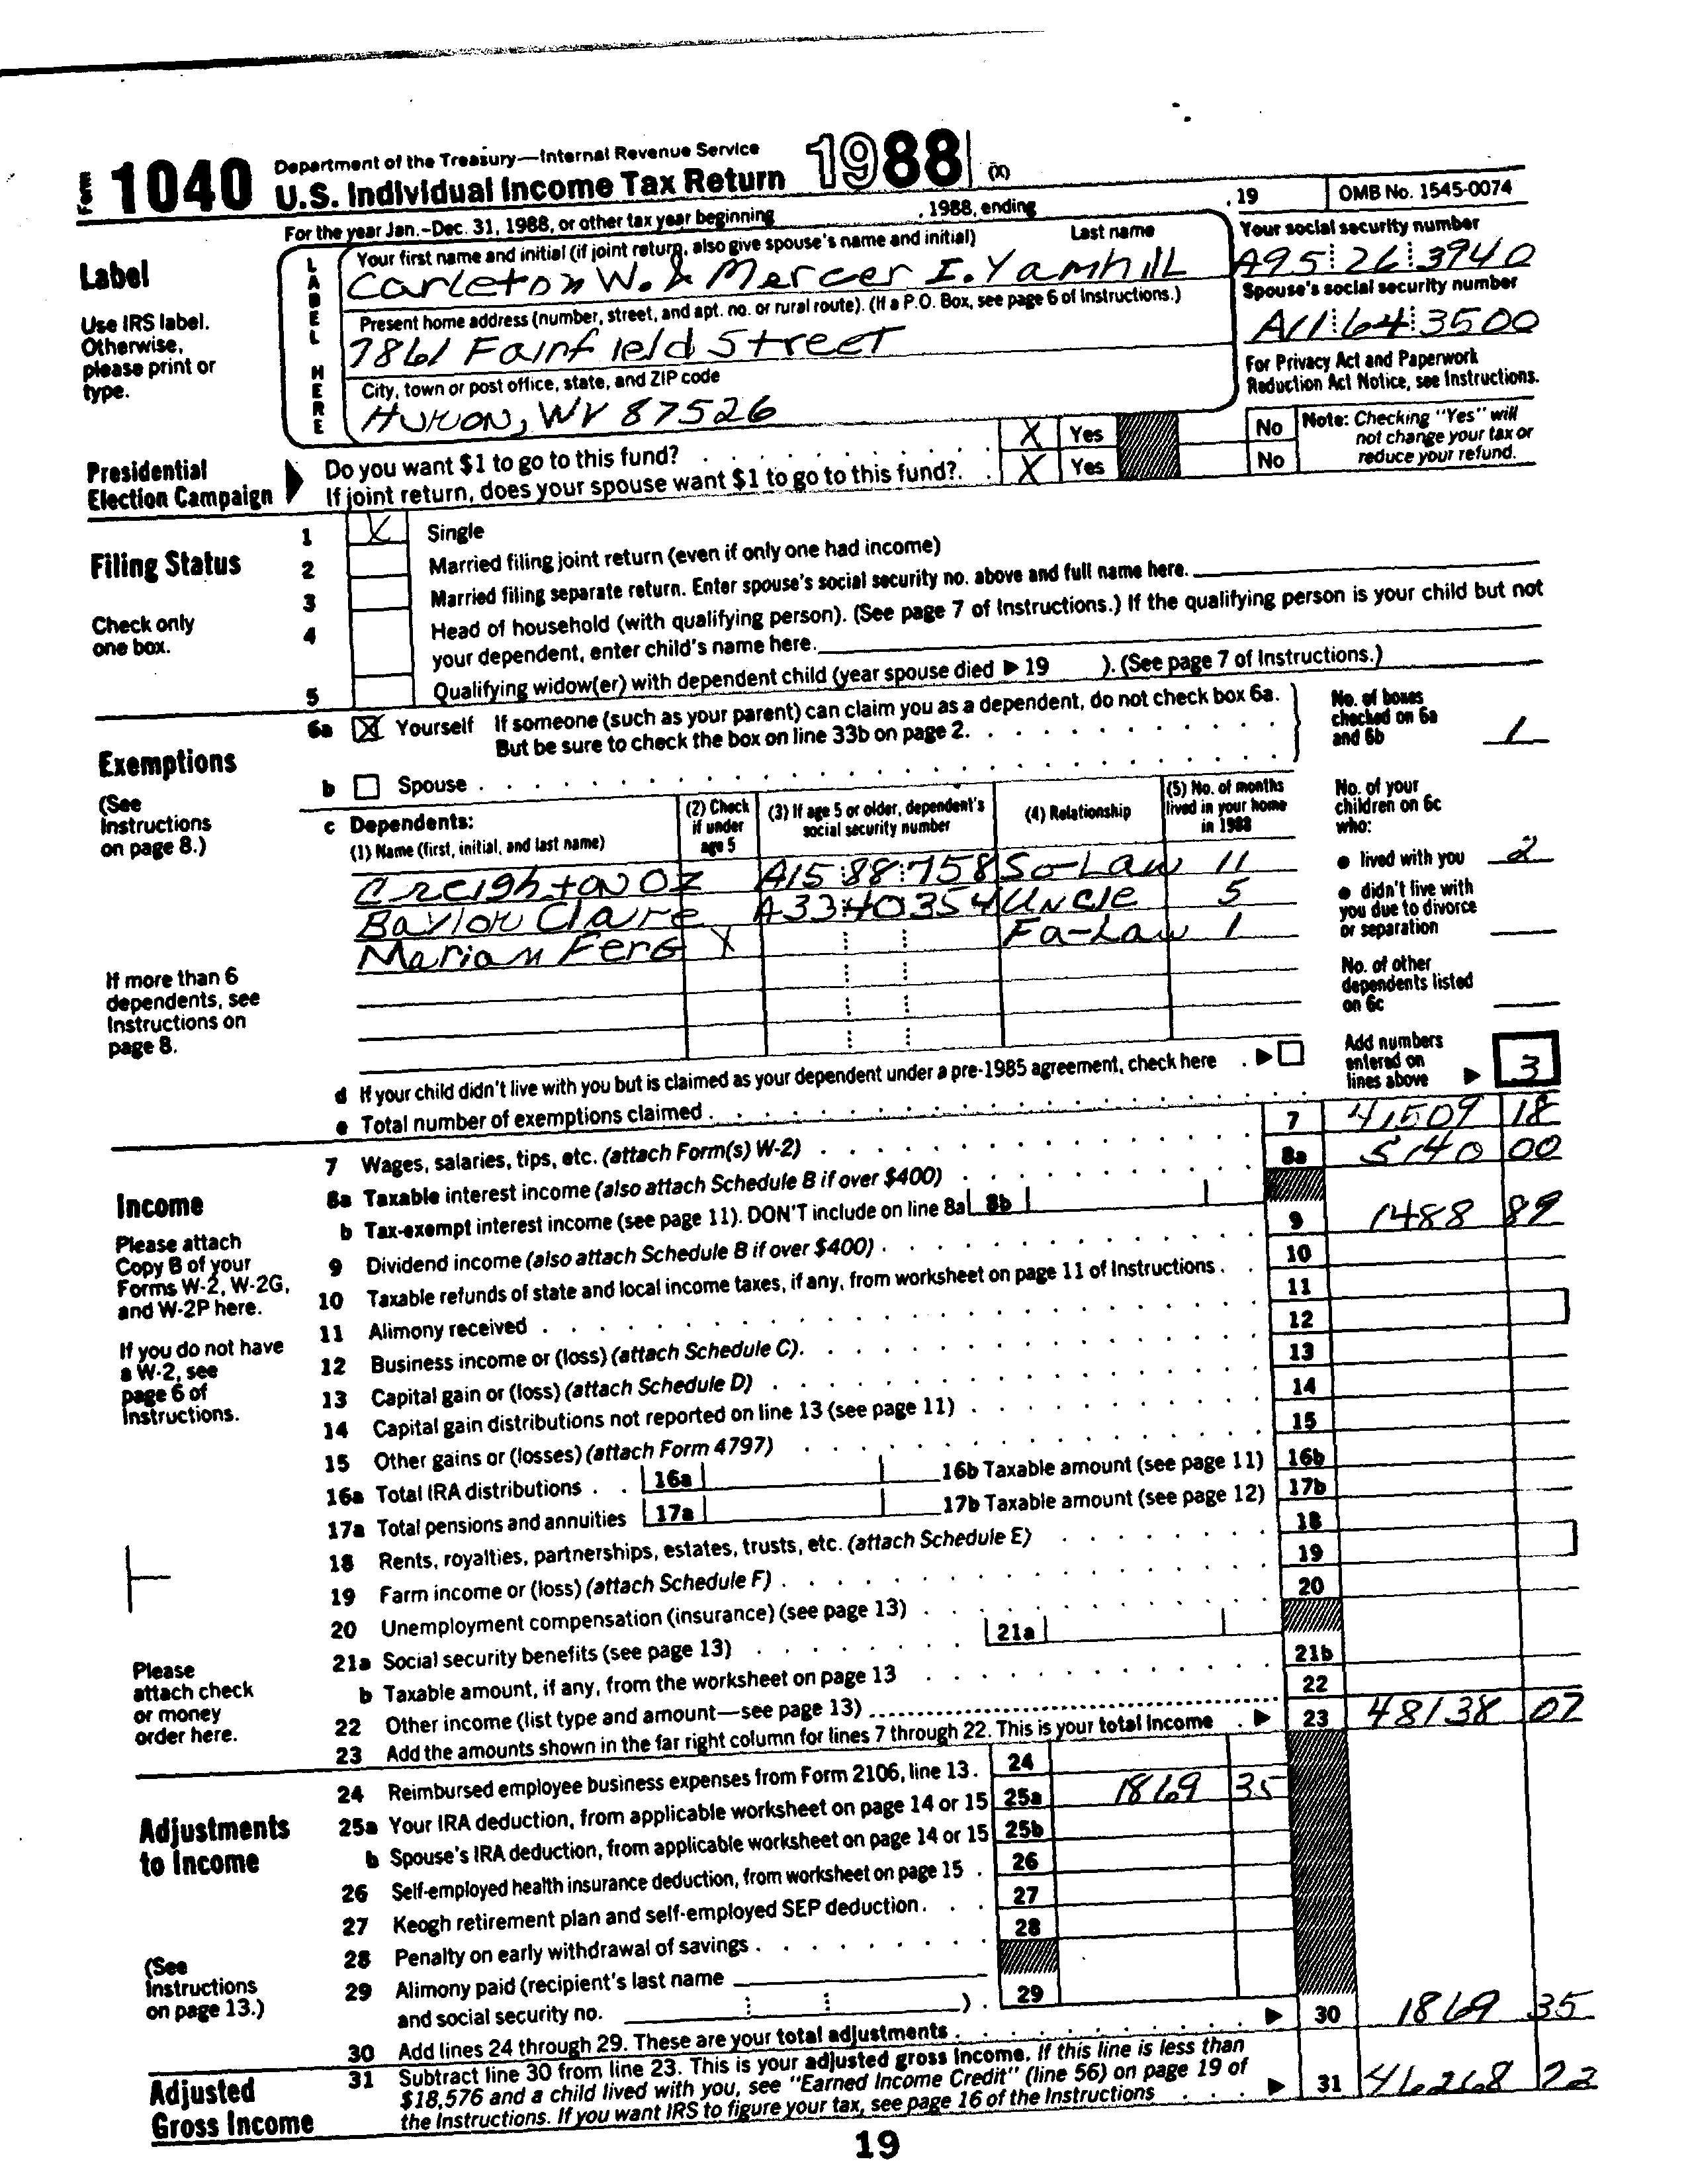 Form 1040 Department of the Treasury—Internal Revenue Service
U.S. Individual Income Tax Return 1988 (X)
For the year Jan.–Dec. 31, 1988, or other tax year beginning , 1988, ending , 19 OMB No. 1545-0074
Label
Use IRS label.
Otherwise,
please print or
type.
LABEL HERE
Your first name and initial (if joint return, also give spouse's name and initial) Last name
Carleton W. & Mercer I. Yamhill
Your social security number
A95 26 3940
Present home address (number, street, and apt. no. or rural route). (If a P.O. Box, see page 6 of Instructions.)
7861 Fairfield Street
Spouse's social security number
A11 64 3500
City, town or post office, state, and ZIP code
Huron, WV 87526
For Privacy Act and Paperwork
Reduction Act Notice, see Instructions.
Presidential
Election Campaign
Do you want $1 to go to this fund? X Yes No
If joint return, does your spouse want $1 to go to this fund? X Yes No
Note: Checking "Yes" will
not change your tax or
reduce your refund.
Filing Status
Check only
one box.
1 X Single
2 Married filing joint return (even if only one had income)
3 Married filing separate return. Enter spouse's social security no. above and full name here.
4 Head of household (with qualifying person). (See page 7 of Instructions.) If the qualifying person is your child but not
your dependent, enter child's name here.
5 Qualifying widow(er) with dependent child (year spouse died ▶ 19 ). (See page 7 of Instructions.)
Exemptions
(See
Instructions
on page 8.)
6a X Yourself If someone (such as your parent) can claim you as a dependent, do not check box 6a.
But be sure to check the box on line 33b on page 2.
b Spouse
No. of boxes
checked on 6a
and 6b 1
c Dependents:
(1) Name (first, initial, and last name)
(2) Check
if under
age 5
(3) If age 5 or older, dependent's
social security number
(4) Relationship
(5) No. of months
lived in your home
in 1988
Creighton Oz A15 88 758 So-Law 11
Baylor Claire A33 40 354 Uncle 5
Marion Ferg X Fa-Law 1
If more than 6
dependents, see
Instructions on
page 8.
No. of your
children on 6c
who:
● lived with you 2
● didn't live with
you due to divorce
or separation
No. of other
dependents listed
on 6c
Add numbers
entered on
lines above ▶ 3
d If your child didn't live with you but is claimed as your dependent under a pre-1985 agreement, check here ▶
e Total number of exemptions claimed
Income
Please attach
Copy B of your
Forms W-2, W-2G,
and W-2P here.
If you do not have
a W-2, see
page 6 of
Instructions.
Please
attach check
or money
order here.
7 Wages, salaries, tips, etc. (attach Form(s) W-2) 7 41509 18
8a Taxable interest income (also attach Schedule B if over $400) 8a 5140 00
b Tax-exempt interest income (see page 11). DON'T include on line 8a 8b
9 Dividend income (also attach Schedule B if over $400) 9 1488 89
10 Taxable refunds of state and local income taxes, if any, from worksheet on page 11 of Instructions 10
11 Alimony received 11
12 Business income or (loss) (attach Schedule C) 12
13 Capital gain or (loss) (attach Schedule D) 13
14 Capital gain distributions not reported on line 13 (see page 11) 14
15 Other gains or (losses) (attach Form 4797) 15
16a Total IRA distributions 16a 16b Taxable amount (see page 11) 16b
17a Total pensions and annuities 17a 17b Taxable amount (see page 12) 17b
18 Rents, royalties, partnerships, estates, trusts, etc. (attach Schedule E) 18
19 Farm income or (loss) (attach Schedule F) 19
20 Unemployment compensation (insurance) (see page 13) 20
21a Social security benefits (see page 13) 21a
b Taxable amount, if any, from the worksheet on page 13 21b
22 Other income (list type and amount—see page 13) 22
23 Add the amounts shown in the far right column for lines 7 through 22. This is your total income ▶ 23 48138 07
Adjustments
to Income
(See
Instructions
on page 13.)
24 Reimbursed employee business expenses from Form 2106, line 13 24
25a Your IRA deduction, from applicable worksheet on page 14 or 15 25a 1869 35
b Spouse's IRA deduction, from applicable worksheet on page 14 or 15 25b
26 Self-employed health insurance deduction, from worksheet on page 15 26
27 Keogh retirement plan and self-employed SEP deduction 27
28 Penalty on early withdrawal of savings 28
29 Alimony paid (recipient's last name
and social security no. ) 29
30 Add lines 24 through 29. These are your total adjustments ▶ 30 1869 35
Adjusted
Gross Income
31 Subtract line 30 from line 23. This is your adjusted gross income. If this line is less than
$18,576 and a child lived with you, see "Earned Income Credit" (line 56) on page 19 of
the Instructions. If you want IRS to figure your tax, see page 16 of the Instructions ▶ 31 46268 72
19